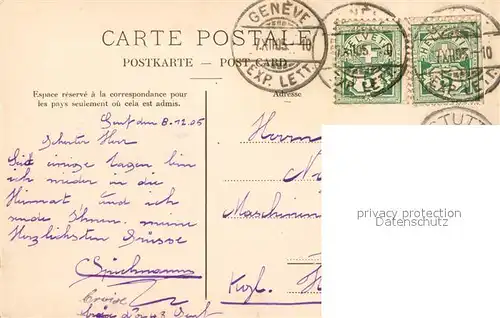 GENÈVE
1.XII05. 10
EXP. LETT.
HELVETIA
HELVETIA
CARTE POSTALE
POSTKARTE — POST CARD
Espace réservé à la correspondance pour
les pays seulement où cela est admis.
Adresse
STUT
Genf den 8.12.05
Geehrter Herr
Seit einige tagen bin
ich wieder in die
Heimat und ich
sende Ihnen meine
Herzlichsten Grüsse
Herrn
Maschinen
Kgl.
Genf
privacy protection
Datenschutz